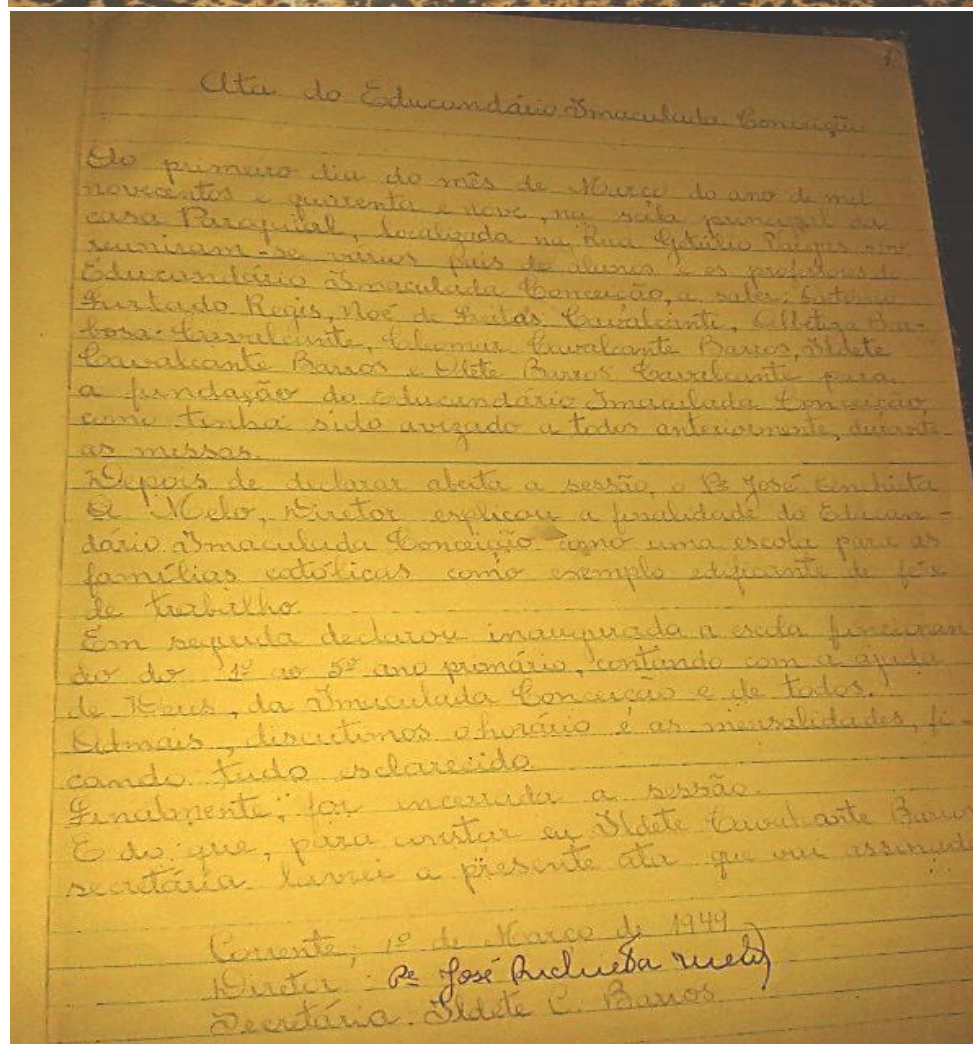 Ata do Educandário Imaculada Conceição
Ao primeiro dia do mês de Março do ano de mil
novecentos e quarenta e nove, na sala principal da
casa Paroquial, localizada na Rua Getúlio Vargas s/nº
reuniram-se vários pais de alunos e os professores do
Educandário Imaculada Conceição, a saber:
Furtado Regis, Noé de Freitas Cavalcante, Albetiza Bar-
bosa Cavalcante, Cavalcante Barros, Ildete
Cavalcante Barros e Barros Cavalcante para
a fundação do Educandário Imaculada Conceição,
como tinha sido avizado a todos anteriormente, durante
as missas.
Depois de declarar aberta a sessão, o Pe José Anchieta
Melo, Diretor explicou a finalidade do Educan-
dário Imaculada Conceição como uma escola para as
famílias católicas como exemplo edificante de fé e
de trabalho.
Em seguida declarou inaugurada a escola funcionan
do do 1º ao 5º ano primário, contando com a ajuda
de Deus, da Imaculada Conceição e de todos.
Ademais, discutimos o horário e as mensalidades, fi-
cando tudo esclarecido.
Finalmente, foi incerrada a sessão.
E do que, para constar eu Ildete Cavalcante Barros
secretária lavrei a presente ata que vai assinada
Corrente, 1º de Março de 1949
Diretor: Pe José Anchieta Melo
Secretária. Ildete C. Barros